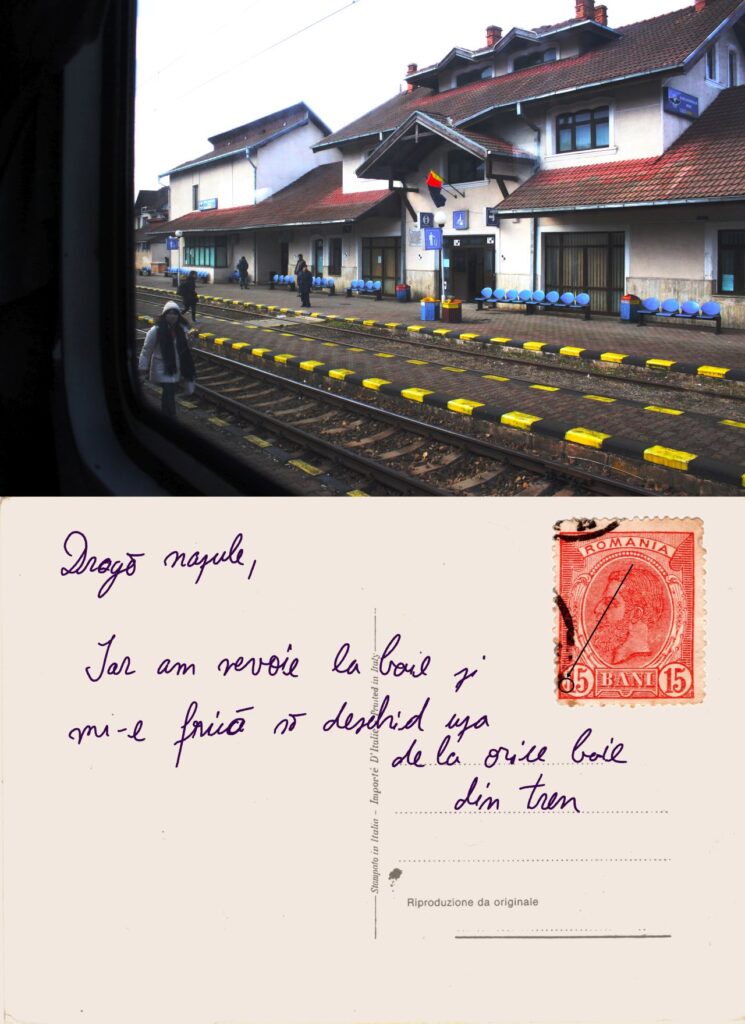 4
Dragă nașule,
ROMANIA
15 BANI 15
Iar am nevoie la baie și
mi-e frică să deschid ușa
de la orice baie
din tren
Stampato in Italia - Importé D'Italie - Printed in Italy
Riproduzione da originale